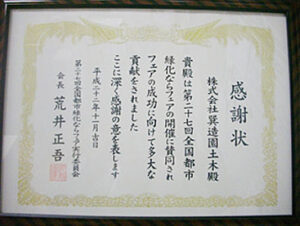 感謝状
株式会社巽造園土木殿
貴殿は第二十七回全国都市
緑化ならフェアの開催に賛同され
フェアの成功に向けて多大な
貢献をされました
ここに深く感謝の意を表します
平成二十二年十一月吉日
第二十七回全国都市緑化ならフェア実行委員会
会長 荒井正吾